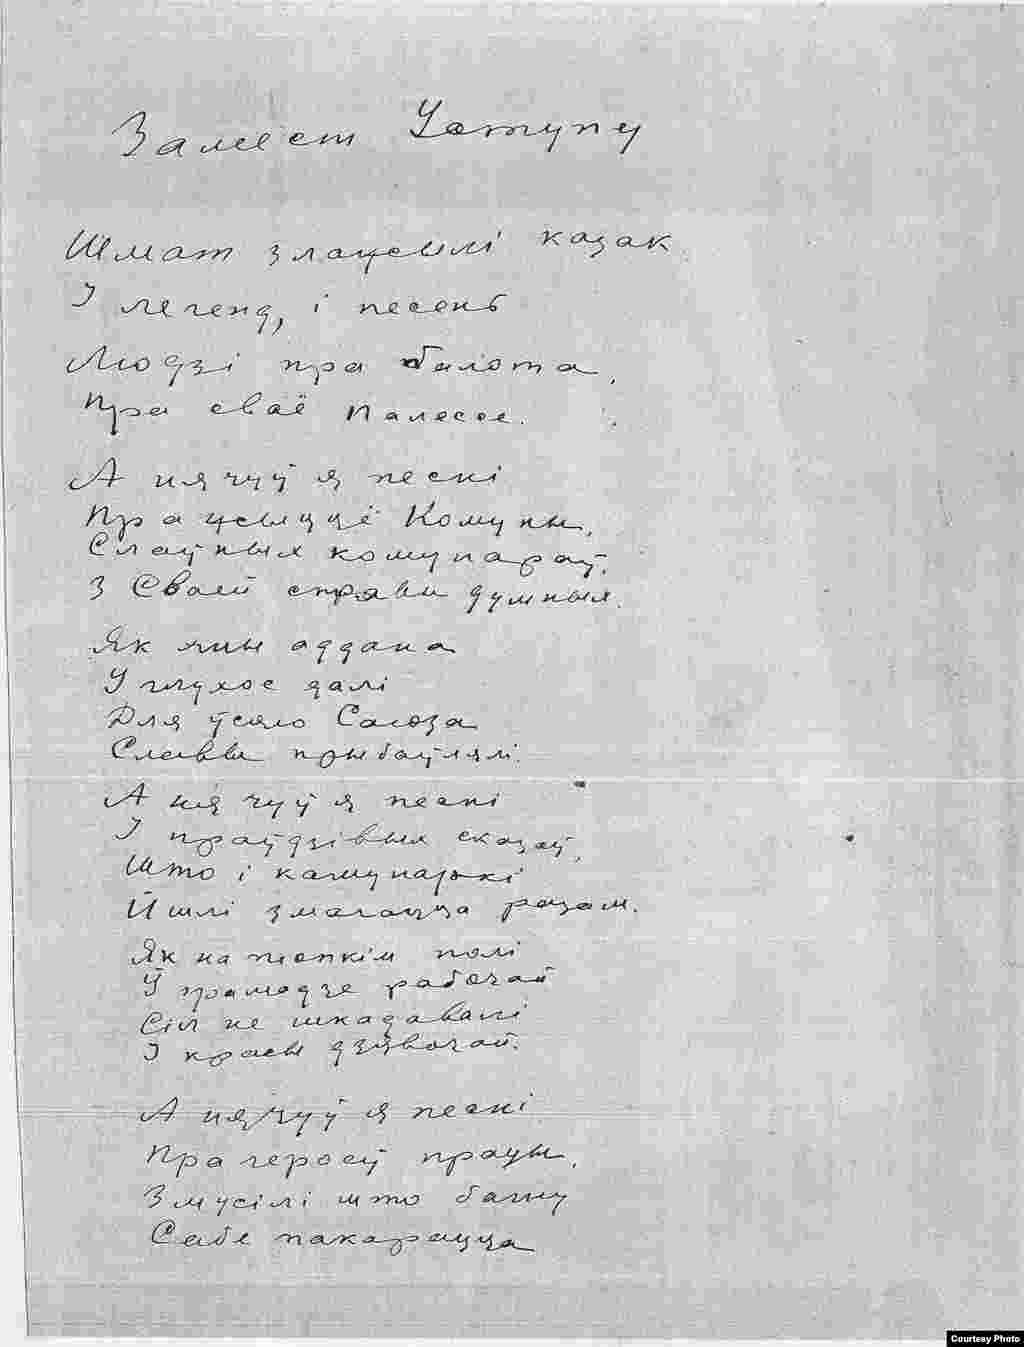 Замест Уступу
Шмат злажылі казак
І легенд, і песень
Людзі пра балота,
Пра сваё Палессе.
А ня чуў я песні
Пра жыццё Комуны,
Слаўных комунараў,
З Сваей справы думных.
Як яны аддана
У глухое далі
Для ўсяго Саюза
Славы прыбаўлялі.
А ня чуў я песні
І праўдзівых сказаў,
Што і камунаркі
Йшлі змагацца разам.
Як на топкім полі
Ў грамадзе рабочай
Сіл не шкадавалі
І красы дзявочай.
А ня чуў я песні
Пра герояў працы,
Змусілі што багну
Сабе пакарацца
Courtesy Photo